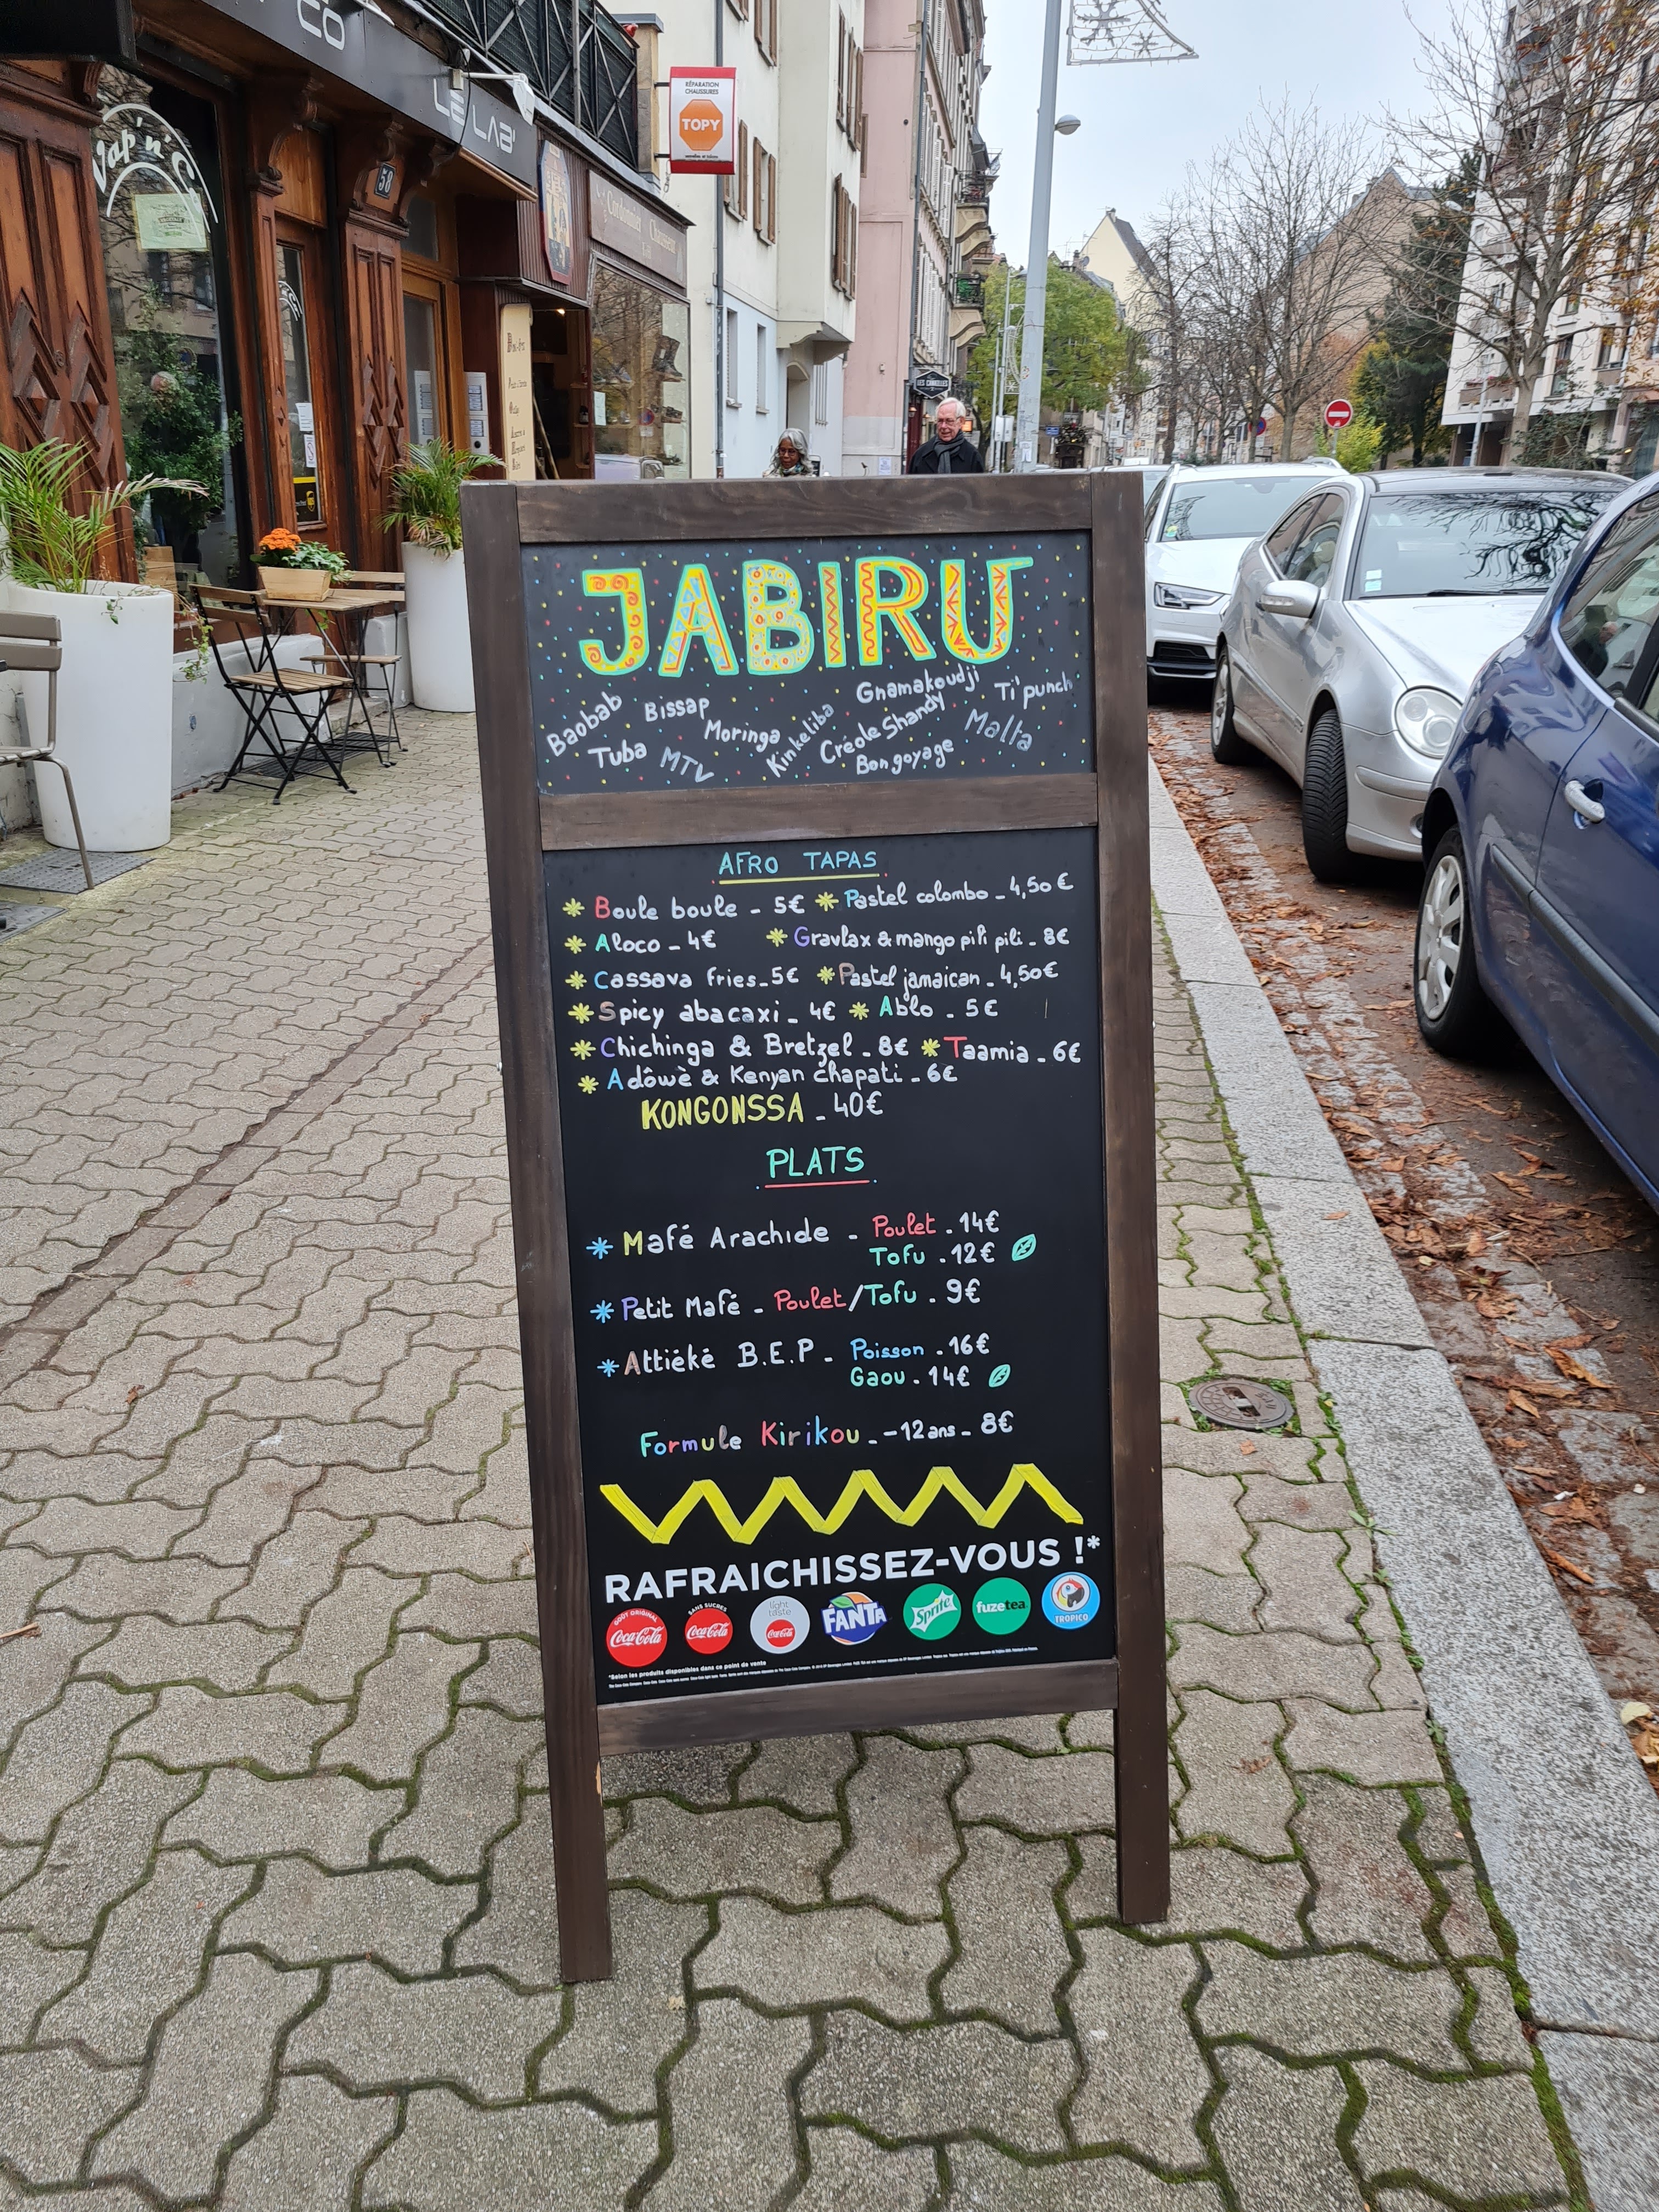 CO
LE LAB'
58
RÉPARATION
CHAUSSURES
TOPY
Cordonnier Chausseur
LES CANAILLES
JABIRU
Baobab Bissap Gnamakoudji Ti'punch
Tuba MTV Moringa Kinkeliba Créole Shandy Malta
Bongoyage
AFRO TAPAS
Boule boule - 5€ Pastel colombo - 4,50€
Aloco - 4€ Gravlax & mango pili pili - 8€
Cassava fries - 5€ Pastel jamaican - 4,50€
Spicy abacaxi - 4€ Ablo - 5€
Chichinga & Bretzel - 8€ Taamia - 6€
Adôwè & Kenyan chapati - 6€
KONGONSSA - 40€
PLATS
Mafé Arachide - Poulet - 14€
Tofu - 12€
Petit Mafé - Poulet/Tofu - 9€
Attiéké B.E.P - Poisson - 16€
Gaou - 14€
Formule Kirikou - -12 ans - 8€
RAFRAICHISSEZ-VOUS !*
GOÛT ORIGINAL Coca-Cola SANS SUCRES Coca-Cola light taste Coca-Cola FANTA Sprite fuzetea TROPICO
*Selon les produits disponibles dans ce point de vente